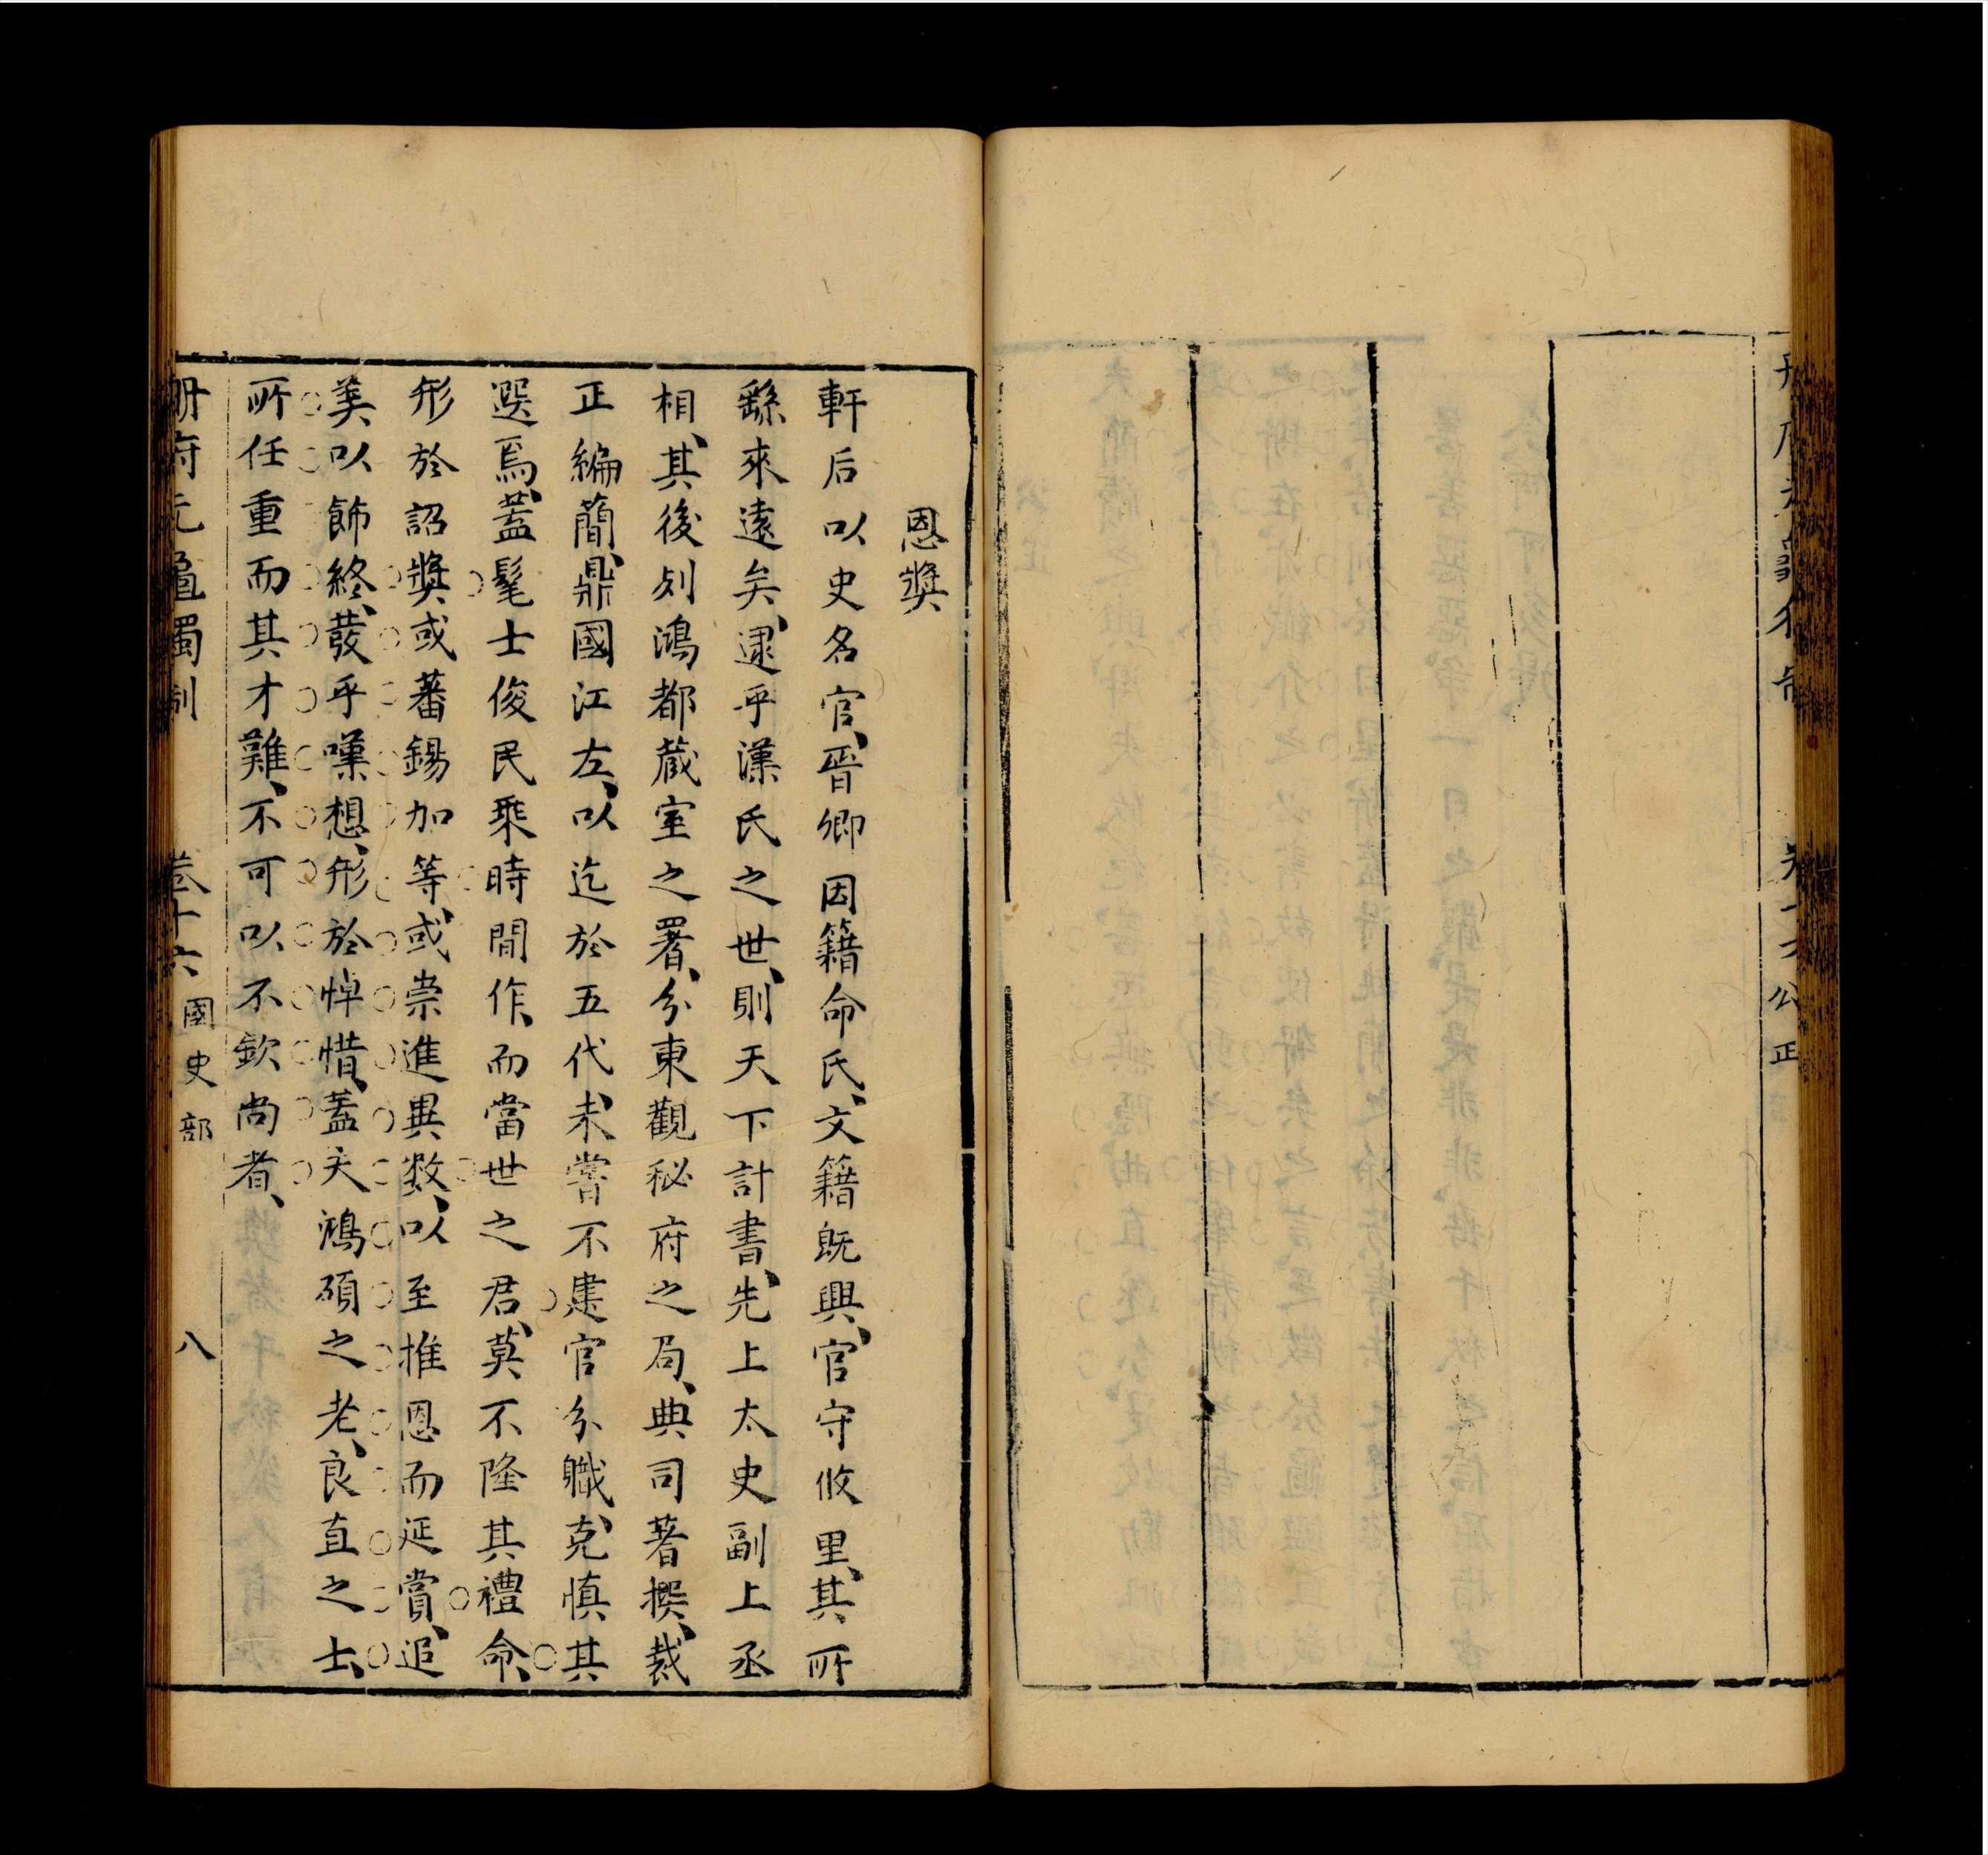 卷十六 公正
恩獎
軒后以史名官、晉卿因籍命氏、文籍既興、官守攸里、其所
繇來遠矣、逮乎漢氏之世、則天下計書、先上太史副上丞
相、其後列鴻都蔵室之署、分東觀秘府之局、典司著撰、裁
正編蕳、鼎國江左、以迄於五代、未嘗不建官分職、克慎其
選焉、蓋髦士俊民乘時閒作、而當世之君、莫不隆其禮命、
形於詔獎或蕃錫加等、或崇進異数、以至推恩而延賞、追
美以飾終、發乎嘆想、形於悼惜、蓋夫鴻碩之老、良直之士、
所任重而其才難、不可以不欽尚者、
册府元龜獨制 卷十六 國史部 八